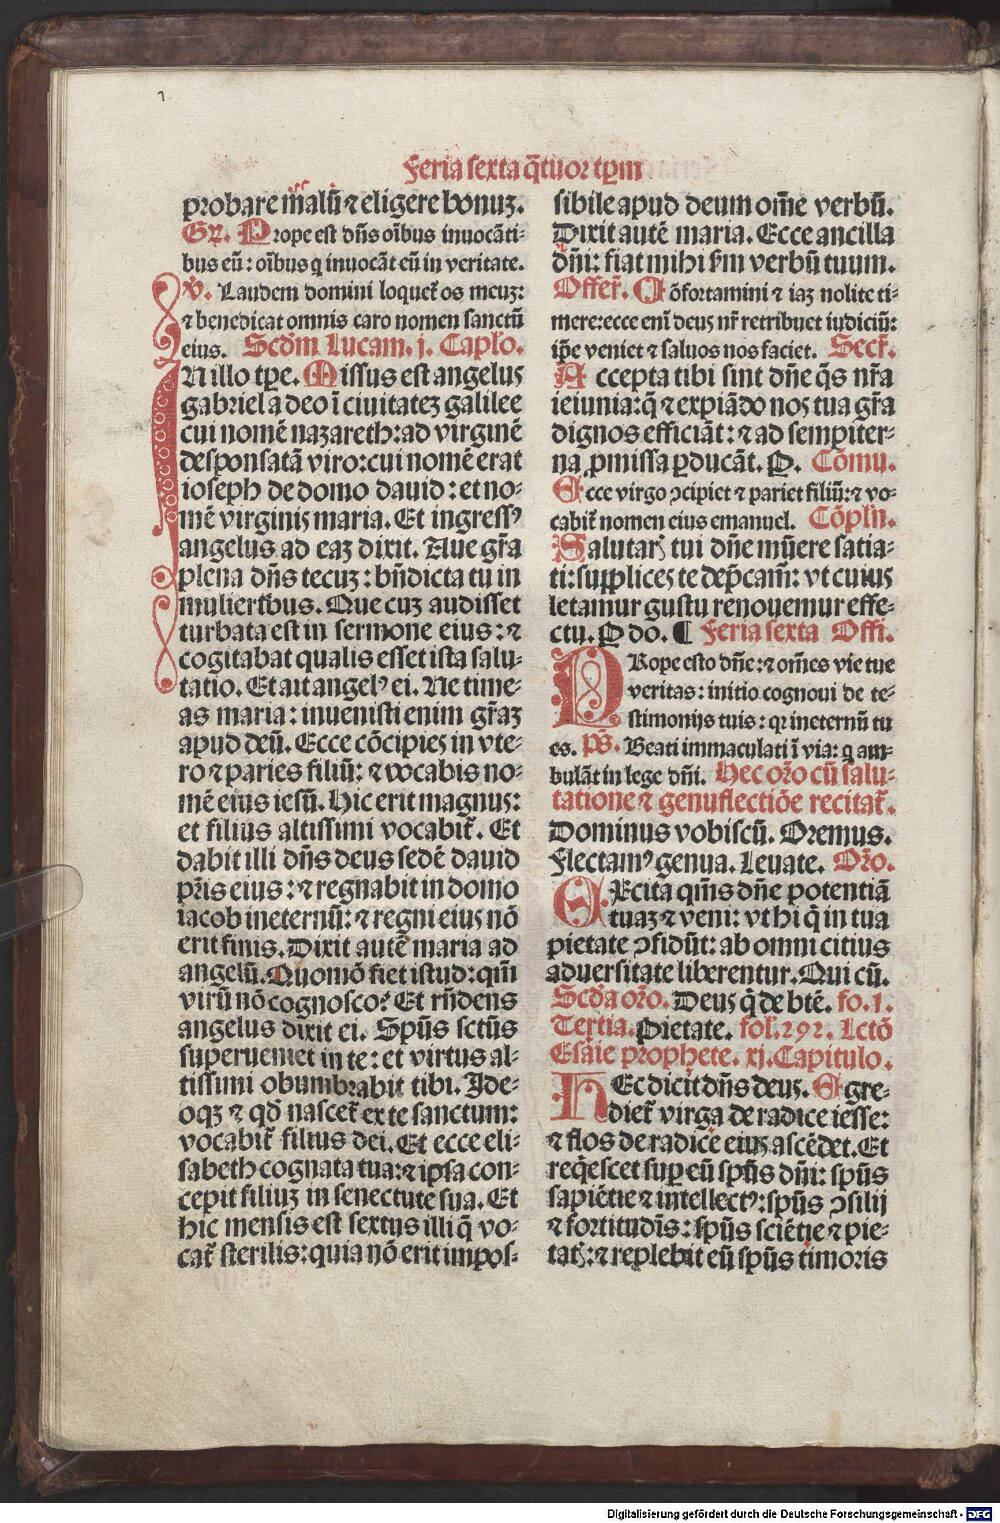 7
Feria sexta q̄tuor tꝑm
probare malū ⁊ eligere bonuꝫ.
Gꝛ. Prope est dn̄s oībus inuocāti-
bus eū : oībus q inuocāt eū in veritate.
v̇. Laudem domini loquet᷑ os meuꝫ:
⁊ benedicat omnis caro nomen sanctū
eius. Scd̄m Lucam. j. Capło.
IN illo tꝑe. Missus est angelus
gabriel a deo ī ciuitateꝫ galilee
cui nomē nazareth: ad virginē
desponsatā viro: cui nomē erat
ioseph de domo dauid: et no-
mē virginis maria. Et ingressꝰ
angelus ad eaꝫ dixit. Aue gr̄a
plena dn̄s tecuꝫ: bn̄dicta tu in
mulieribus. Que cuꝫ audisset
turbata est in sermone eius: ⁊
cogitabat qualis esset ista salu-
tatio. Et ait angelꝰ ei. Ne time-
as maria: inuenisti enim gr̄aꝫ
apud deū. Ecce cōcipies in vte-
ro ⁊ paries filiū: ⁊ vocabis no-
mē eius iesū. Hic erit magnus:
et filius altissimi vocabit᷑. Et
dabit illi dn̄s deus sedē dauid
pr̄is eius: ⁊ regnabit in domo
iacob ineternū: ⁊ regni eius nō
erit finis. Dixit autē maria ad
angelū. Quomō fiet istud: qm̄
virū nō cognosco? Et rn̄dens
angelus dixit ei. Spūs sctūs
superueniet in te: et virtus al-
tissimi obumbrabit tibi. Ide-
oqꝫ ⁊ qd̄ nascet᷑ ex te sanctum:
vocabit᷑ filius dei. Et ecce eli-
sabeth cognata tua: ⁊ ipsa con-
cepit filiuꝫ in senectute sua. Et
hic mensis est sextus illi q̄ vo-
cat᷑ sterilis: quia nō erit impos-
sibile apud deum om̄e verbū.
Dixit autē maria. Ecce ancilla
dn̄i: fiat mihi s̄m verbū tuum.
Offer̄. Cōfortamini ⁊ iaꝫ nolite ti-
mere: ecce enī deus nr̄ retribuet iudiciū:
ip̄e veniet ⁊ saluos nos faciet. Secr̄.
Accepta tibi sint dn̄e q̄s nr̄a
ieiunia: q̄ ⁊ expiādo nos tua gr̄a
dignos efficiāt: ⁊ ad sempiter-
na ꝓmissa ꝑducāt. P. Cōmu.
Ecce virgo ↄcipiet ⁊ pariet filiū: ⁊ vo-
cabit᷑ nomen eius emanuel. Cōpln̄.
Salutarꝭ tui dn̄e mūere satia-
ti: supplices te dep̄cam̄: vt cuius
letamur gustu renouemur effe-
ctu. P do. ¶ Feria sexta Offi.
PRope esto dn̄e: ⁊ om̄es vie tue
veritas: initio cognoui de te-
stimonijs tuis: qꝛ ineternū tu
es. Ps̄. Beati immaculati ī via: q am-
bulāt in lege dn̄i. Hec or̄o cū salu-
tatione ⁊ genuflectiōe recitat᷑.
Dominus vobiscū. Oremus.
Flectamꝰ genua. Leuate. Or̄o.
EXcita qm̄s dn̄e potentiā
tuaꝫ ⁊ veni: vt hi q̄ in tua
pietate ↄfidūt: ab omni citius
aduersitate liberentur. Qui cū.
Scd̄a or̄o. Deus q̄ de btē. fo. 1.
Tertia. Pietate. fol. 292. Lctō
Esaie prophete. xj. Capitulo.
HEc dicit dn̄s deus. Egre-
diet᷑ virga de radice iesse:
⁊ flos de radice eius ascēdet. Et
reqescet suꝑ eū spūs dn̄i: spūs
sapiētie ⁊ intellectꝰ: spūs ↄsilij
⁊ fortitudīs: spūs sciētie ⁊ pie-
tatꝭ: ⁊ replebit eū spūs timoris
Digitalisierung gefördert durch die Deutsche Forschungsgemeinschaft - DFG